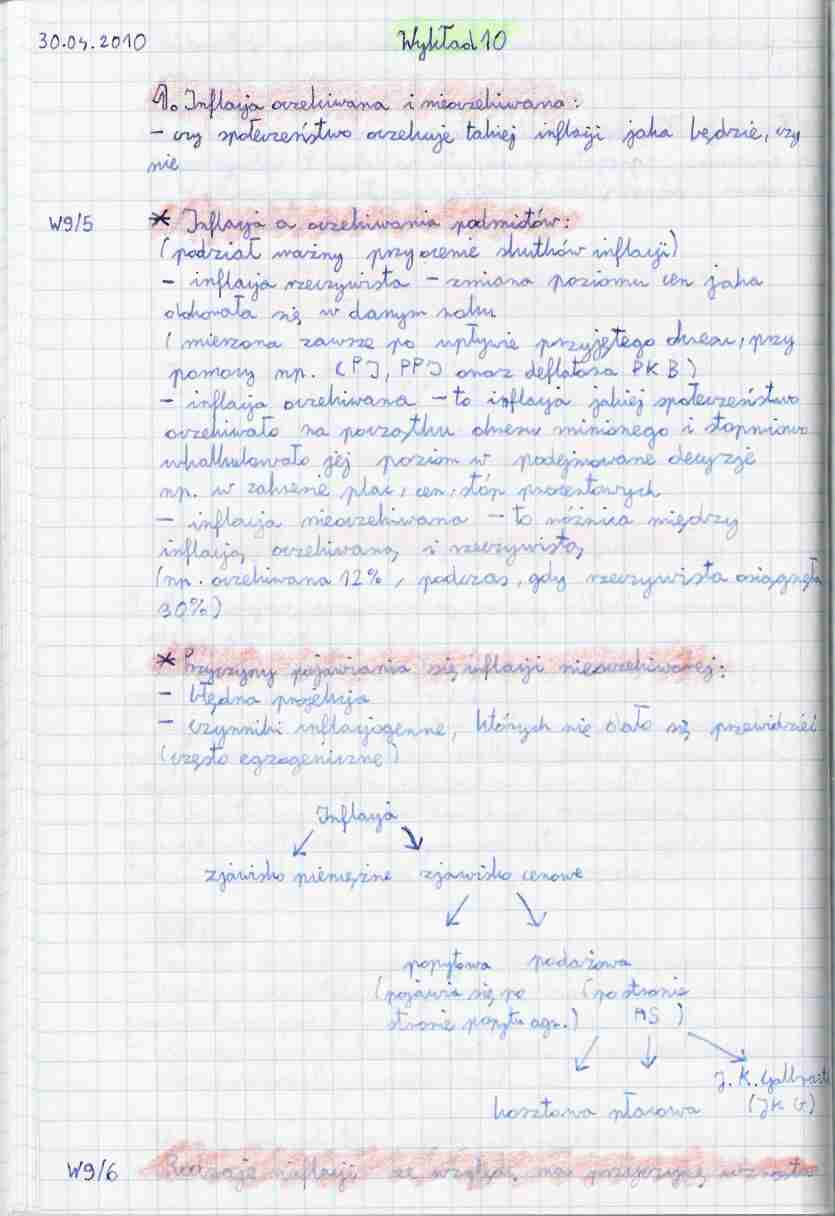 30.04.2010 Wykład 10
1. Inflacja oczekiwana i nieoczekiwana:
- czy społeczeństwo oczekuje takiej inflacji jaka będzie, czy
nie
W9/5 * Inflacja a oczekiwania podmiotów:
(podział ważny przy ocenie skutków inflacji)
- inflacja rzeczywista - zmiana poziomu cen jaka
dokonała się w danym roku
(mierzona zawsze po upływie przyjętego okresu, przy
pomocy np. CPI, PPI oraz deflatora PKB)
- inflacja oczekiwana - to inflacja jakiej społeczeństwo
oczekiwało na początku okresu minionego i stopniowo
wkalkulowało jej poziom w podejmowane decyzje
np. w zakresie płac, cen, stóp procentowych
- inflacja nieoczekiwana - to różnica między
inflacją oczekiwaną i rzeczywistą
(np. oczekiwana 12%, podczas, gdy rzeczywista osiągnęła
30%)
* Przyczyny pojawiania się inflacji nieoczekiwanej:
- błędna projekcja
- czynniki inflacjogenne, których nie dało się przewidzieć
(często egzogeniczne)
Inflacja
zjawisko pieniężne zjawisko cenowe
popytowa podażowa
(pojawia się po (po stronie
stronie popytu agr.) AS)
J. K. Galbraith
kosztowa płacowa (JK G)
W9/6 Rodzaje inflacji ze względu na przyczynę wzrostu